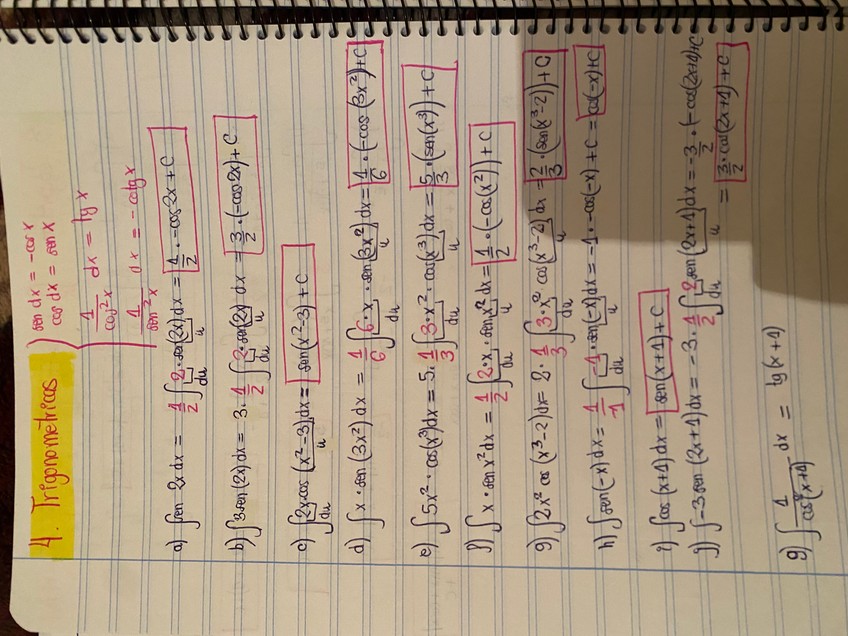 4. Trigonometricas
sen dx = -cos x
cos dx = sen x
1/cos²x dx = tg x
1/sen²x dx = -cotg x
a) ∫sen 2x dx = 1/2 ∫2·sen(2x) dx = 1/2 · -cos 2x + C
du u
b) ∫3sen(2x) dx = 3·1/2 ∫2·sen(2x) dx = 3/2 · (-cos 2x) + C
du u
c) ∫2x cos(x²-3) dx = sen(x²-3) + C
u
d) ∫x·sen(3x²) dx = 1/6 ∫6·x·sen(3x²) dx = 1/6 · (-cos(3x²) + C
du u
e) ∫5x²·cos(x³) dx = 5·1/3 ∫3·x²·cos(x³) dx = 5/3 · (sen(x³)) + C
du u
f) ∫x·sen x² dx = 1/2 ∫2·x·sen x² dx = 1/2 · (-cos(x²)) + C
du u
g) ∫2x² cos(x³-2) dx = 2·1/3 ∫3·x² cos(x³-2) dx = 2/3 · (sen(x³-2)) + C
du u
h) ∫sen(-x) dx = 1/-1 ∫-1·sen(-x) dx = -1·-cos(-x) + C = cos(-x) + C
du u
i) ∫cos(x+1) dx = sen(x+1) + C
j) ∫-3sen(2x+1) dx = -3·1/2 ∫2sen(2x+1) dx = -3/2 · (-cos(2x+1) + C
du u
= 3/2 · cos(2x+1) + C
g) ∫1/cos²(x+1) dx = tg(x+1)